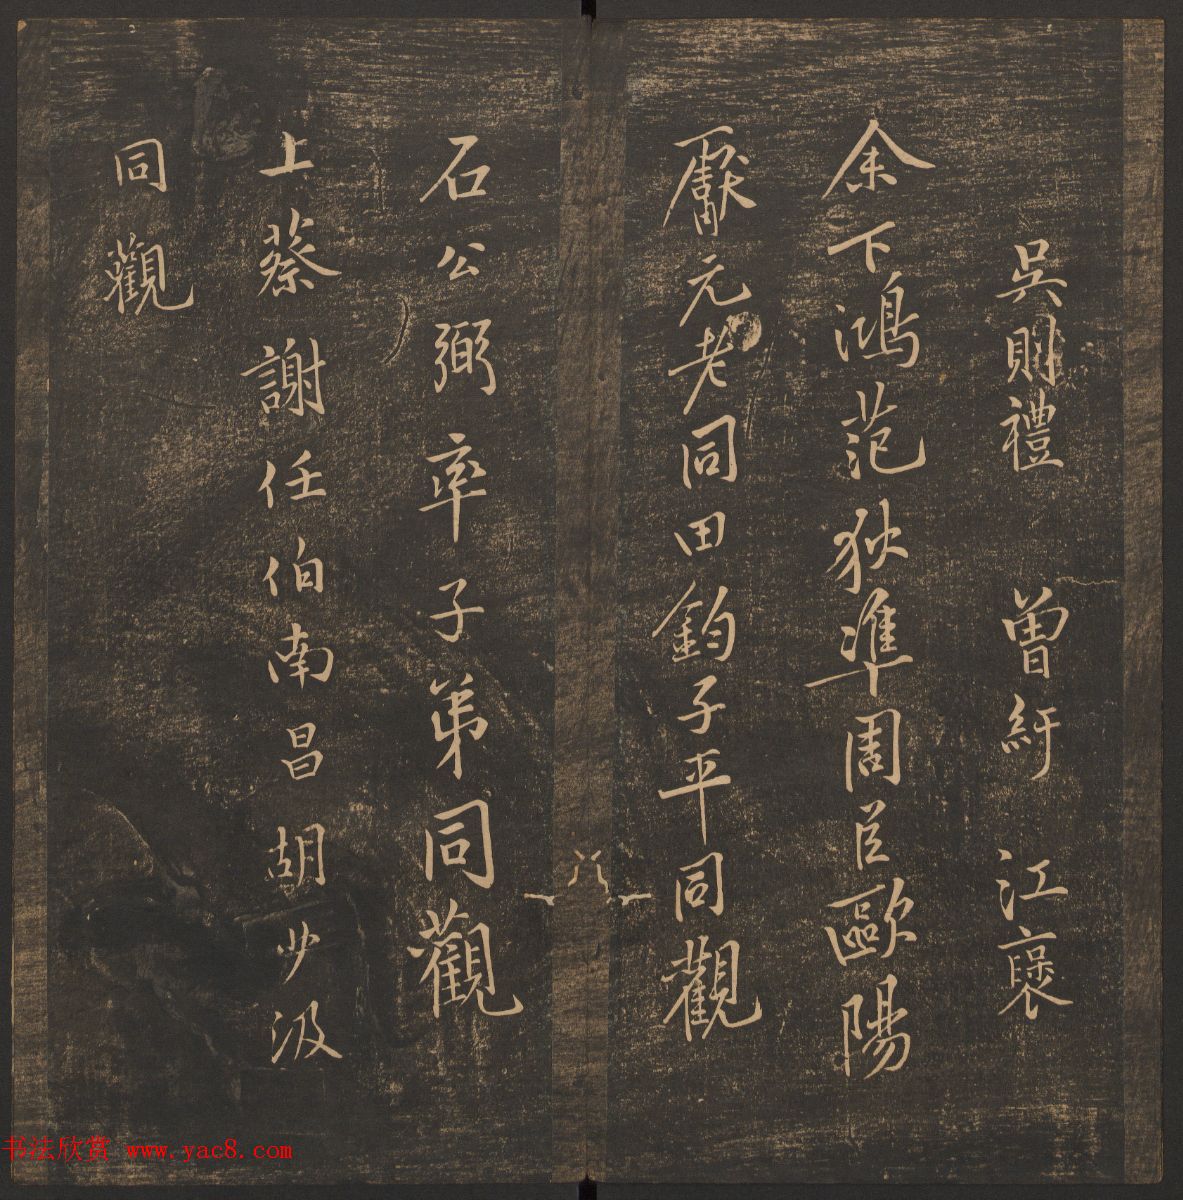 吳則禮 曾紆 江褎
余下鴻范狄準周臣歐陽
獻元老同田鈞子平同觀
石公弼率子弟同觀
上蔡謝任伯南昌胡少汲
同觀
书法欣赏 www.yac8.com